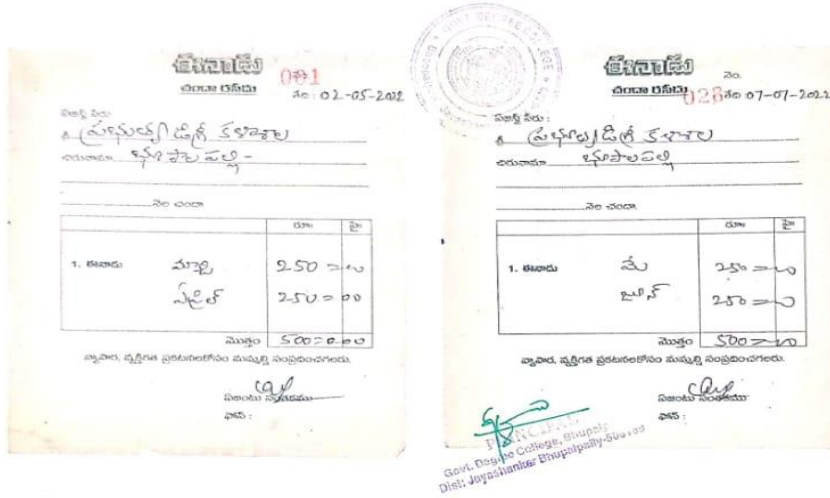 ఈనాడు
చందా రశీదు 001 తేది: 02-05-2022
ఏజెన్సీ పేరు:
ప్రభుత్వ డిగ్రీ కళాశాల
చిరునామా భూపాలపల్లి -
నెల చందా
రూ॥ పై
1. ఈనాడు మార్చి 250=00
ఏప్రిల్ 250=00
మొత్తం 500=00
వ్యాపార, వ్యక్తిగత ప్రకటనలకోసం మమ్మల్ని సంప్రదించగలరు.
ఏజెంటు సంతకము
ఫోన్ :
GOVT. DEGREE COLLEGE
ఈనాడు
నెం.
చందా రశీదు 028 తేది: 07-07-2022
ఏజెన్సీ పేరు :
ప్రభుత్వ డిగ్రీ కళాశాల
చిరునామా భూపాలపల్లి
నెల చందా
రూ॥ పై
1. ఈనాడు మే 250=00
జూన్ 250=00
మొత్తం 500=00
వ్యాపార, వ్యక్తిగత ప్రకటనలకోసం మమ్మల్ని సంప్రదించగలరు.
ఏజెంటు సంతకము
ఫోన్ :
PRINCIPAL
Govt. Degree College, Bhupalp
Dist: Jayashankar Bhupalpally-506169